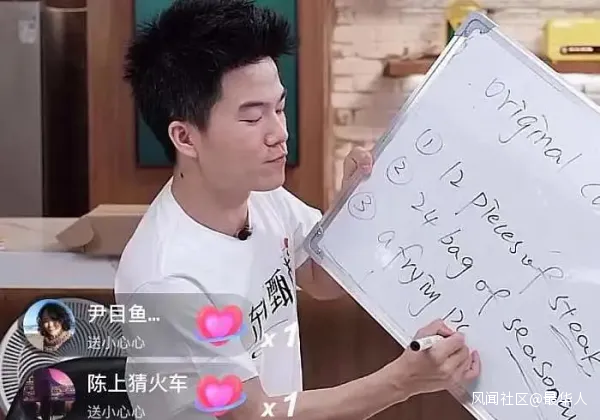 original
① 12 pieces of steak
② 24 bag of
③ a frying
东方甄
尹目鱼...
送小心心
x1
陈上猜火车
送小心心
x1
风闻社区@最华人